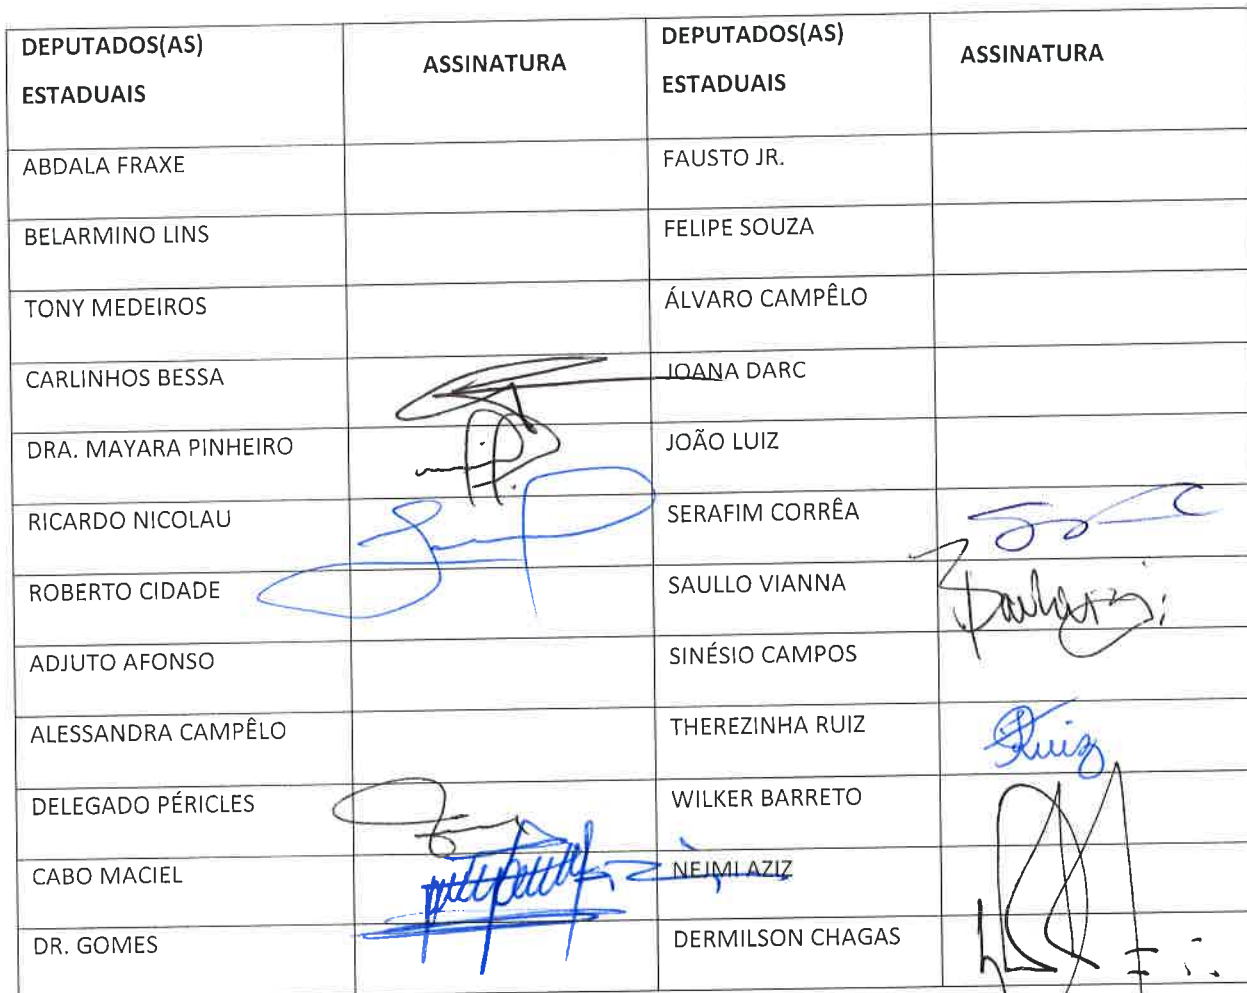 DEPUTADOS(AS) ESTADUAIS ASSINATURA DEPUTADOS(AS) ESTADUAIS ASSINATURA
ABDALA FRAXE FAUSTO JR.
BELARMINO LINS FELIPE SOUZA
TONY MEDEIROS ÁLVARO CAMPÊLO
CARLINHOS BESSA JOANA DARC
DRA. MAYARA PINHEIRO JOÃO LUIZ
RICARDO NICOLAU SERAFIM CORRÊA
ROBERTO CIDADE SAULLO VIANNA
ADJUTO AFONSO SINÉSIO CAMPOS
ALESSANDRA CAMPÊLO THEREZINHA RUIZ Ruiz
DELEGADO PÉRICLES WILKER BARRETO
CABO MACIEL NEJMI AZIZ
DR. GOMES DERMILSON CHAGAS